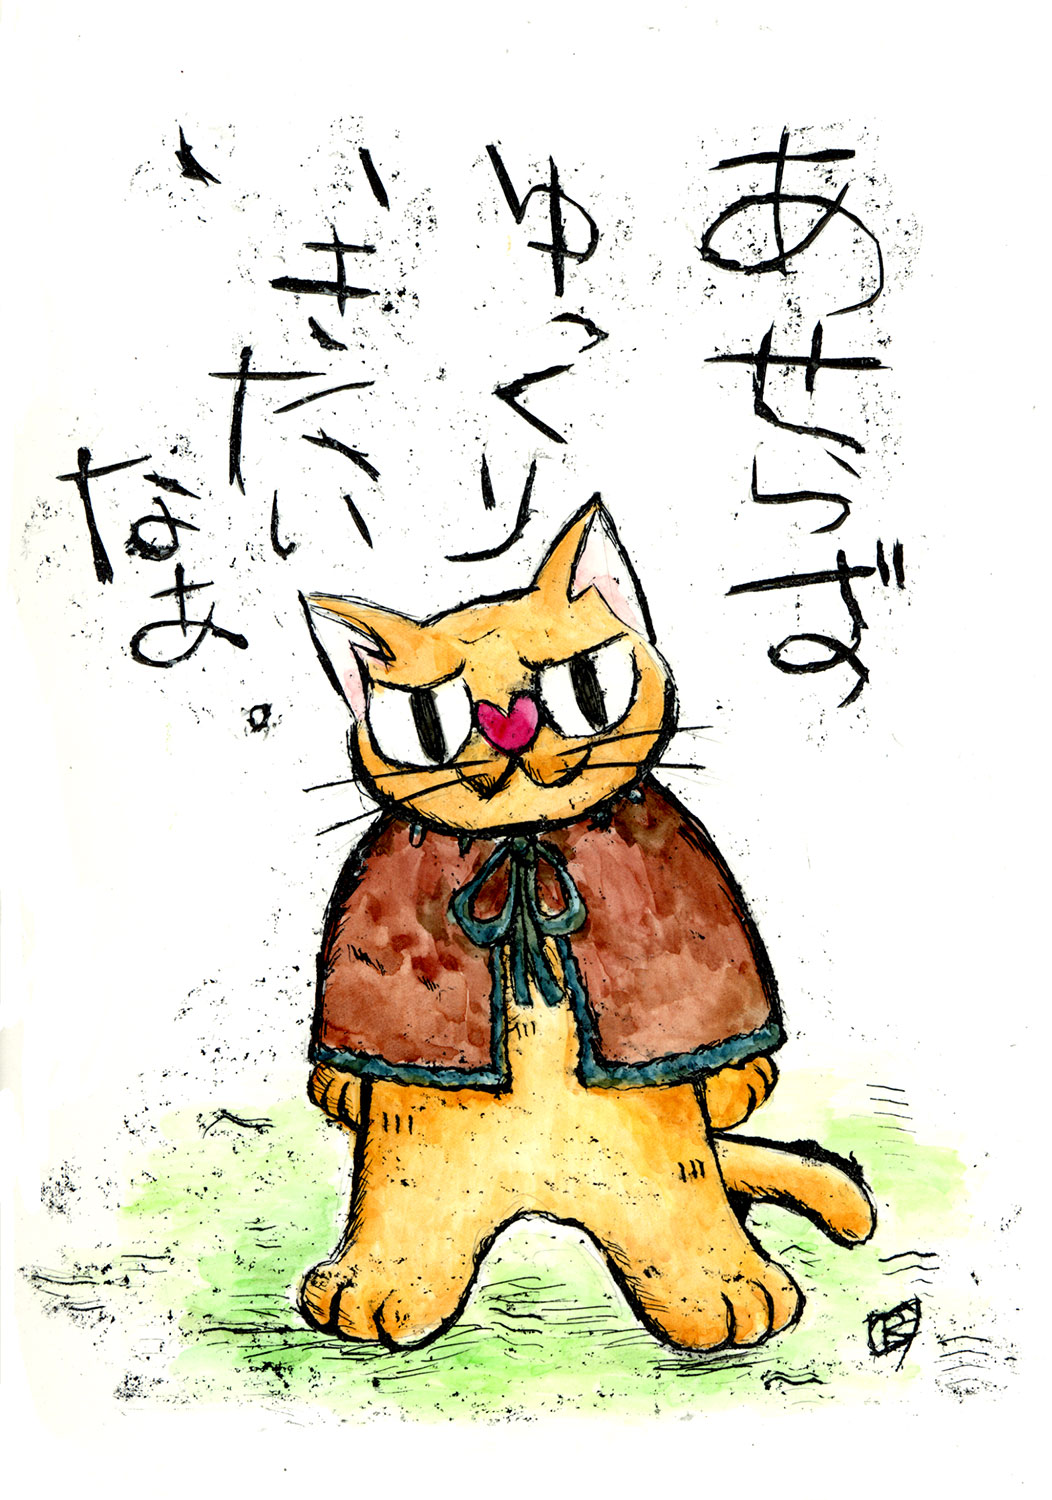 あせらず
ゆっくり
いきたい
なあ。